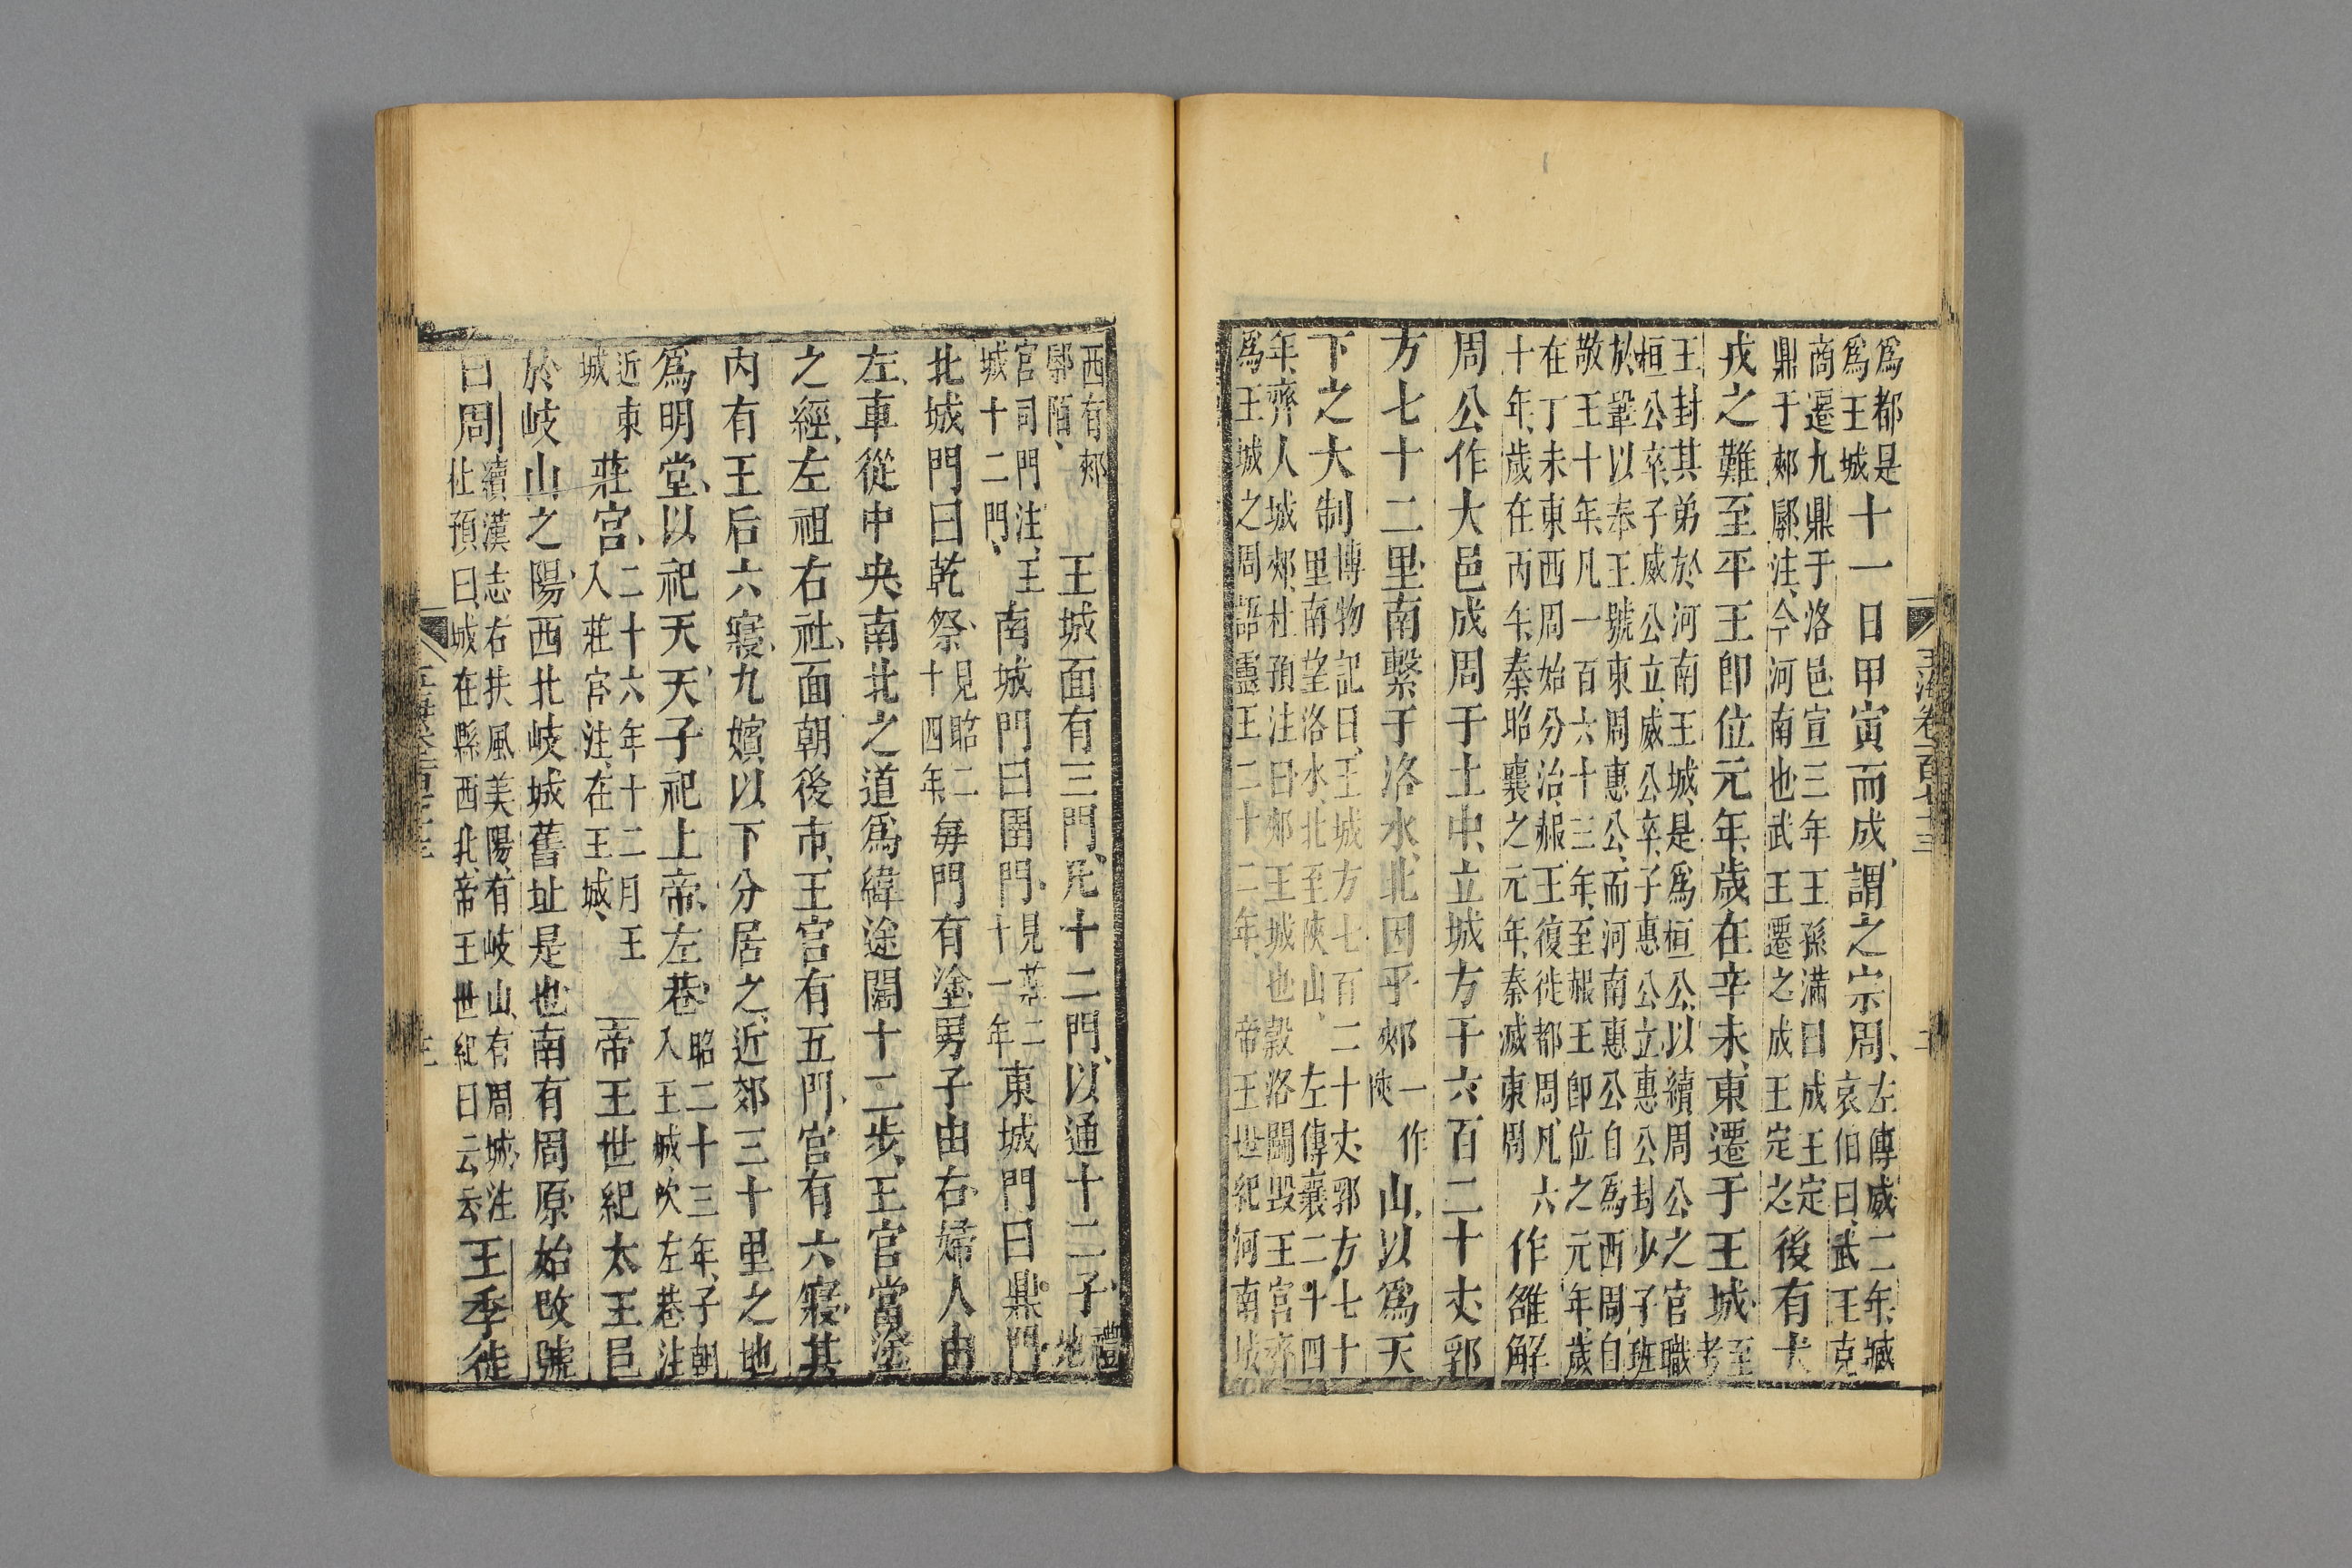 爲都是爲王城十一日甲寅而成謂之宗周左傳威二年臧哀伯曰武王克
商遷九鼎于洛邑宣三年王孫滿曰成王定鼎于郟鄏注今河南也武王遷之成王定之後有犬
戎之難至平王即位元年歲在辛未東遷于王城至考
王封其弟於河南王城是爲桓公以續周公之官職桓公卒子威公立威公卒子惠公立惠公封少子班
於鞏以奉王號東周惠公而河南惠公自爲西周自敬王十年凡一百六十三年至赧王即位之元年歲
在丁未東西周始分治赧王復徙都周凡六十年歲在丙午秦昭襄之元年秦滅東周作雒解
周公作大邑成周于土中立城方千六百二十丈郛
方七十二里南繫于洛水北因乎郟一作陝山以爲天
下之大制博物記曰王城方七百二十丈郛方七十里南望洛水北至陝山左傳襄二十四
年齊人城郟杜預注曰郟王城也穀洛鬭毀王宮齊爲王城之周語靈王二十二年帝王世紀河南城
玉海卷一百七十三
西有郟鄏陌王城面有三門凡十二門以通十二子禮地
官司門注王城十二門南城門曰圉門見莊二十一年東城門曰鼎門
北城門曰乾祭見昭二十四年每門有塗男子由右婦人由
左車從中央南北之道爲緯途闊十二步王官當塗
之經左祖右社面朝後市王宮有五門官有六寢其
內有王后六寢九嬪以下分居之近郊三十里之地
爲明堂以祀天天子祀上帝左巷昭二十三年子朝入王城次左巷注
近東城莊宮二十六年十二月王入莊宮注在王城帝王世紀太王邑
於岐山之陽西北岐城舊址是也南有周原始改號
曰周續漢志右扶風美陽有岐山有周城注杜預曰城在縣西北帝王世紀曰云云王季徙